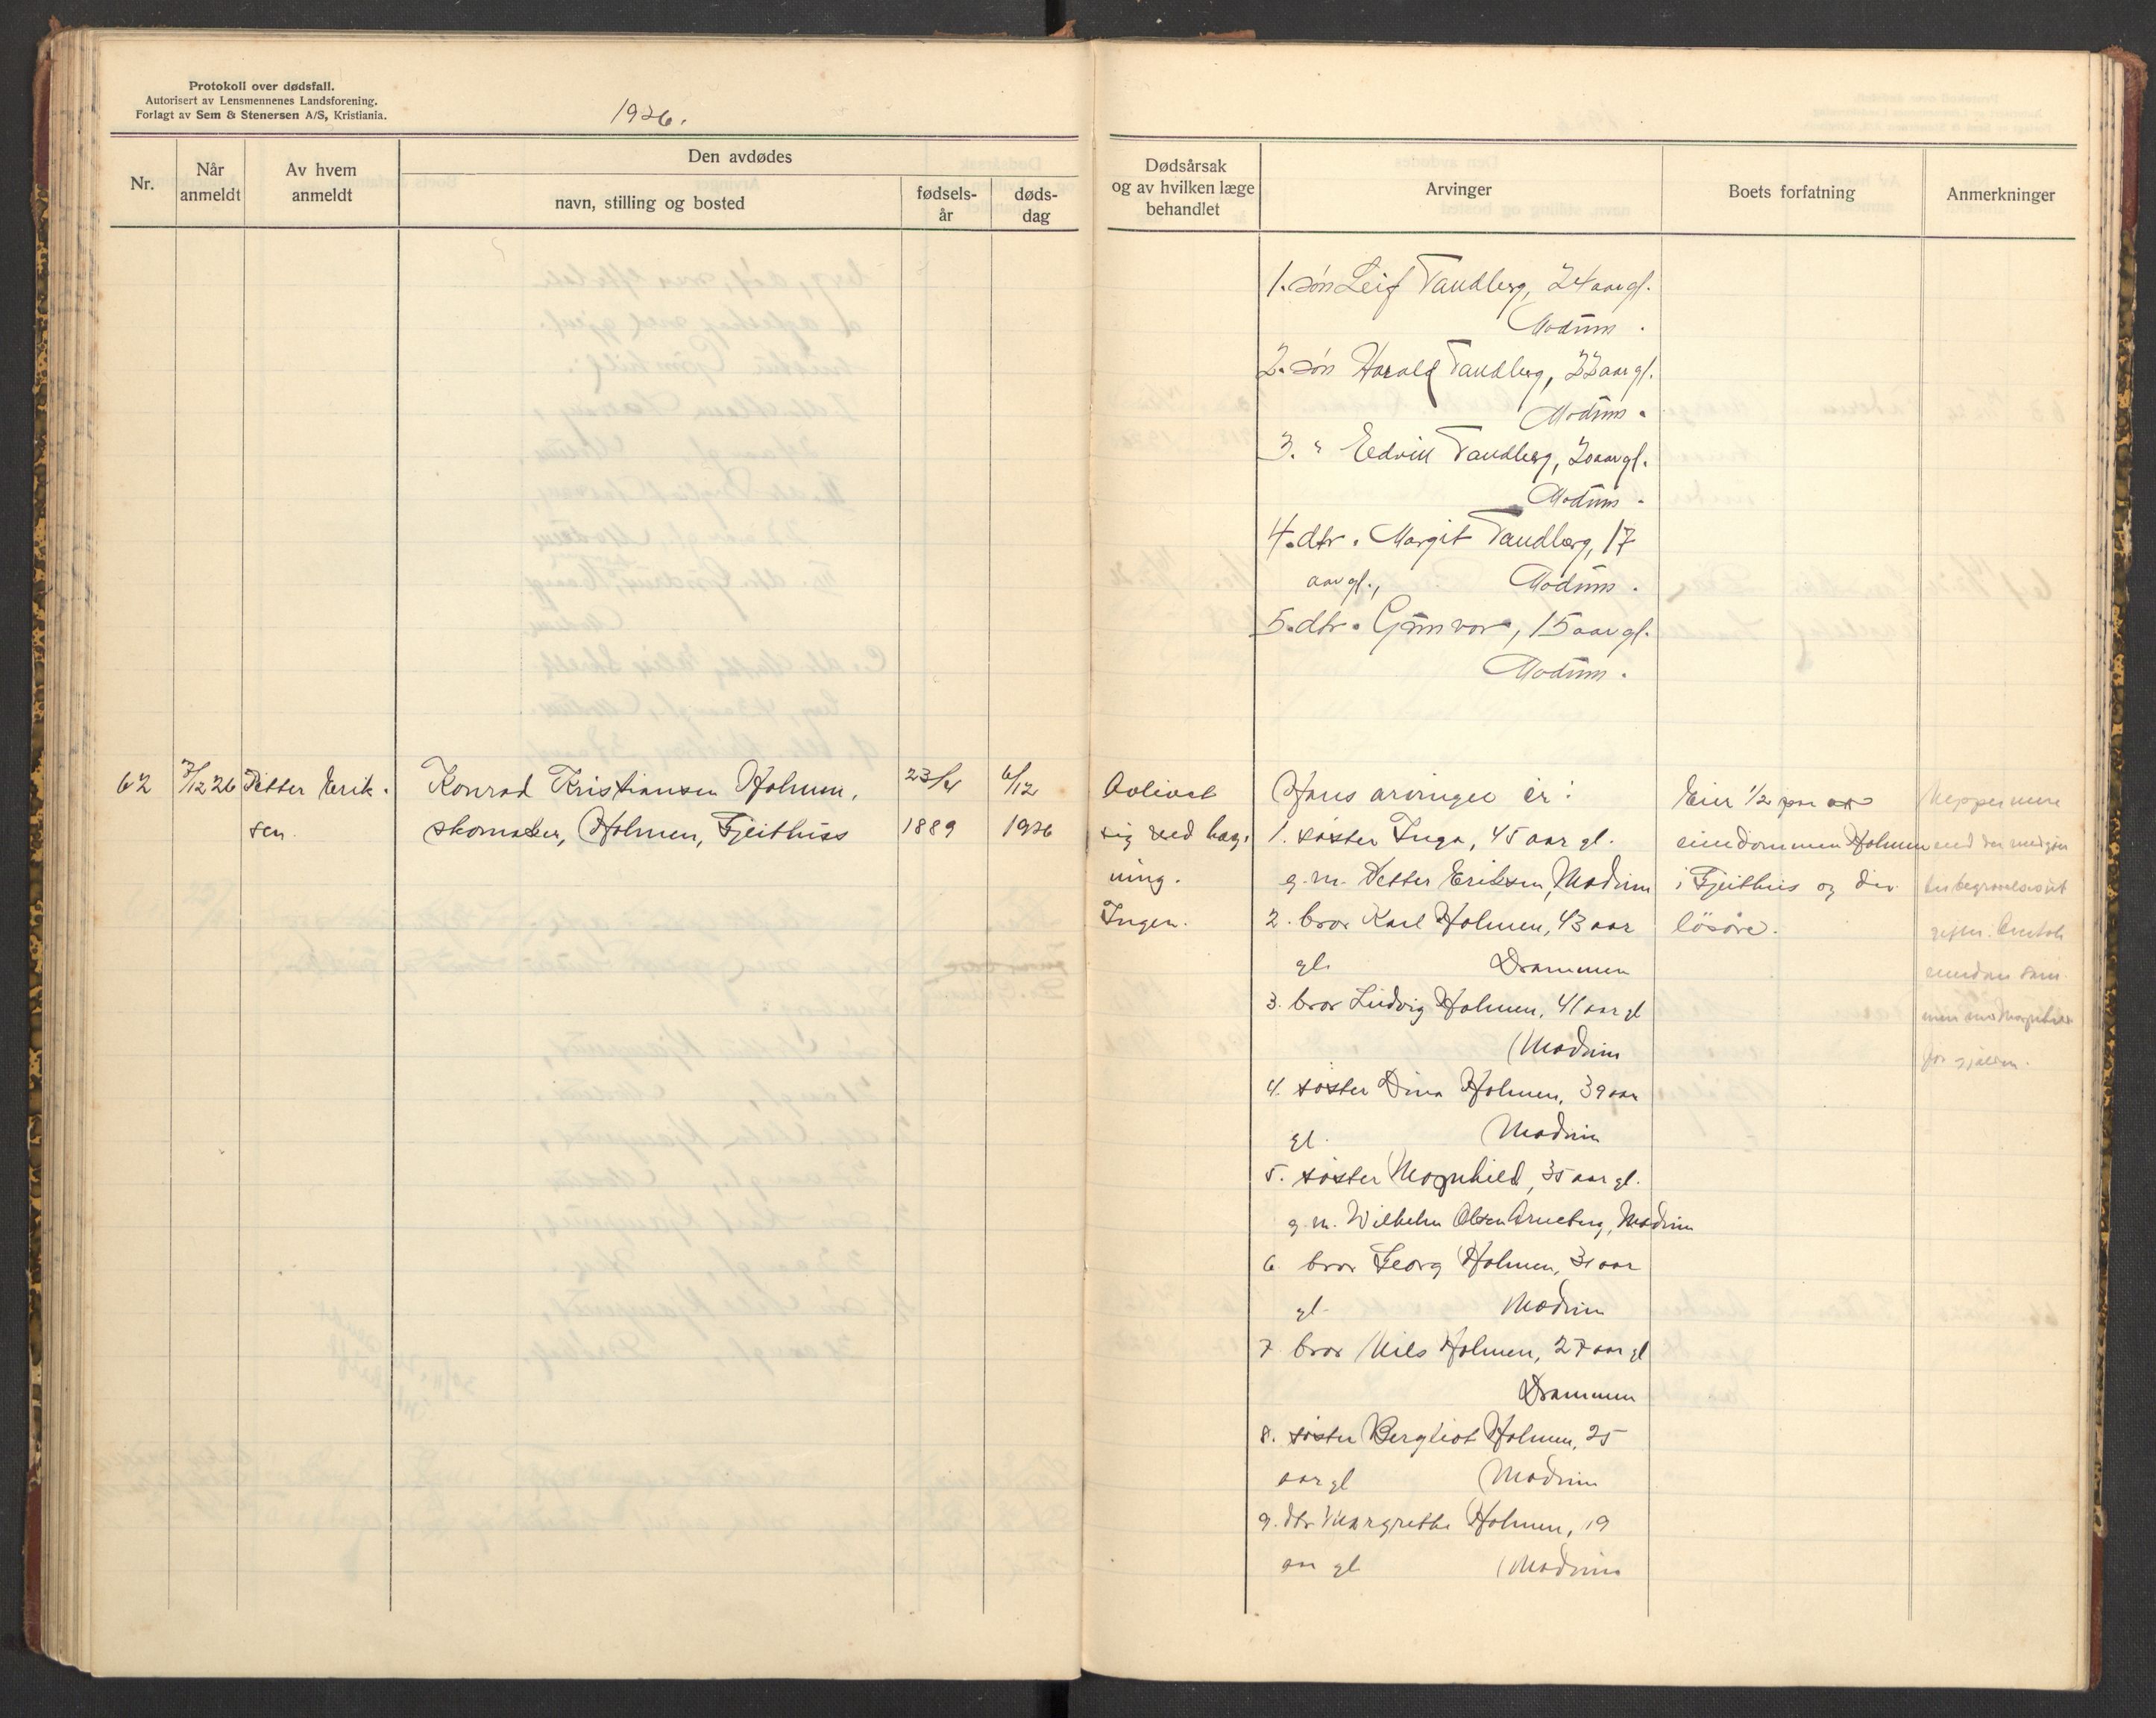 Protokoll over dødsfall.
Autorisert av Lensmennenes Landsforening.
Forlagt av Sem & Stenersen A/S, Kristiania.
1926.
Nr.
Når anmeldt
Av hvem anmeldt
Den avdødes
navn, stilling og bosted
fødsels-
år
døds-
dag
Dødsårsak
og av hvilken læge
behandlet
Arvinger
Boets forfatning
Anmerkninger
1. søn Leif Tandberg, 24 aar gl.
Modum.
2. søn Harald Tandberg, 22 aar gl.
Modum.
3. " Edvin Tandberg, 20 aar gl.
Modum.
4. dtr. Margit Tandberg, 17
aar gl., Modum.
5. dtr. Gunvor, 15 aar gl.
Modum.
62
7/12 26
Petter Erik-
sen.
Konrad Kristiansen Holmen,
skomaker, Holmen, Gjeithus
23/4
1889
6/12
1926
Avlivet
sig ved hæng-
ning.
Ingen.
Hans arvinger er:
1. søster Inga, 45 aar gl.
g.m. Petter Eriksen, Modum
2. bror Karl Holmen, 43 aar
gl. Drammen
3. bror Ludvig Holmen, 41 aar gl
Modum
4. søster Dina Holmen, 39 aar
gl. Modum
5. søster Magnhild, 35 aar gl.
g.m. Wilhelm Olsen Arneberg, Modum
6. bror Georg Holmen, 31 aar
gl. Modum
7. bror Nils Holmen, 27 aar gl
Drammen
8. søster Bergliot Holmen, 25
aar gl Modum
9. dtr Margrethe Holmen, 19
aar gl Modum
Eier 1/2 part av
eiendommen Holmen
i Gjeithus og div.
løsøre.
Neppe mere
end der medgår
til begravelsesut
gifter.
for gjælden.